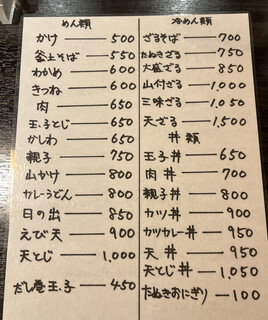 めん類
かけ 500
釜上そば 550
わかめ 600
きつね 600
肉 650
玉子とじ 650
かしわ 650
親子 750
山かけ 800
カレーうどん 800
日の出 850
えび天 900
天とじ 1,000
だし巻玉子 450
冷めん類
ざるそば 700
たぬきざる 750
大盛ざる 850
山付ざる 1,000
三味ざる 1,050
天ざる 1,500
丼類
玉子丼 650
肉丼 700
親子丼 800
カツ丼 900
カツカレー丼 950
天丼 950
天とじ丼 1,050
たぬきおにぎり 100